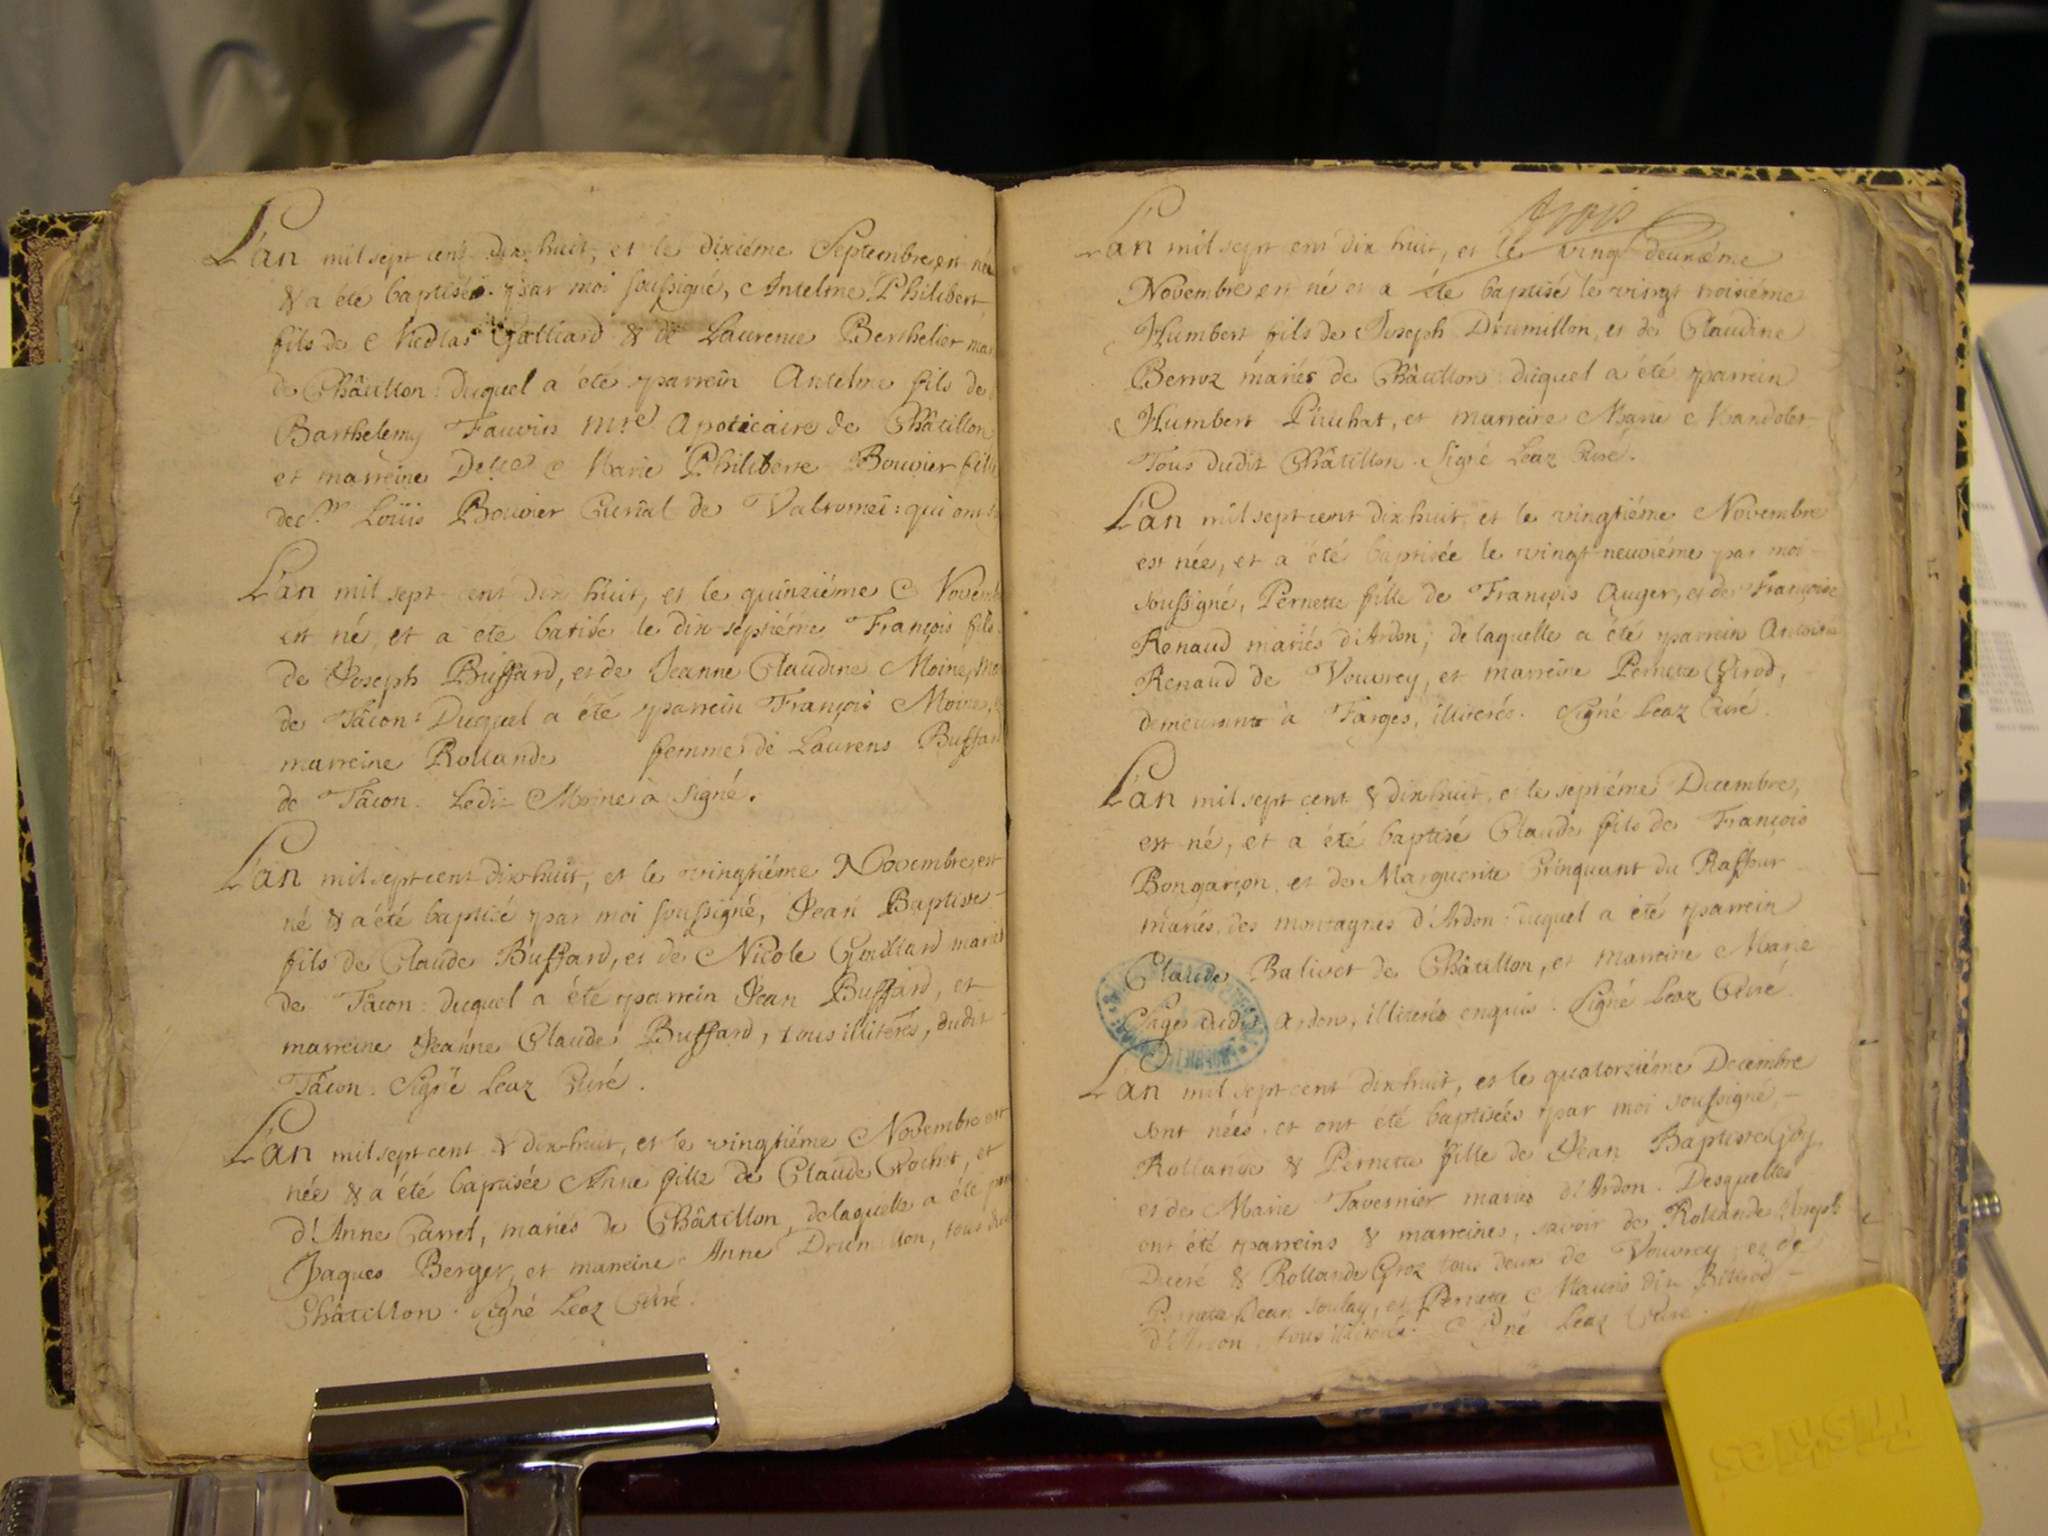 L'an mil sept cent dix huit, et le dixiéme Septembre est né
& a été baptisé par moi soussigné, Antelme Philibert
fils de Nicolas Galliard & de Laurence Berthelier
de Châtillon: duquel a été parrein Antelme fils de
Barthelemy Fauvin Mre Apoticaire de Châtillon
et marreine Delle Marie Philiberte Bouvier fille
de Sr Loüis Bouvier Curial de Valromei: qui ont
L'an mil sept cent dix huit, et le quinziéme
est né, et a été batisé le dix septiéme François fils
de Joseph Buffard, et de Jeanne Claudine Moine,
de Tâcon: Duquel a été parrein François Moine,
marreine Rollande femme de Laurens
de Tâcon. Ledit Moine a signé.
L'an mil sept cent dix huit, et le vingtiéme Novembre est
né & a été baptisé par moi soussigné, Jean Baptiste
fils de Claude Buffard, et de Nicole Goillard mariés
de Tâcon: duquel a été parrein Jean Buffard, et
marreine Jeanne Claude Buffard, tous illiterés, dudit
Tâcon. Signé Leaz Curé.
L'an mil sept cent & dix huit, et le vingtiéme Novembre est
née & a été baptisée Anne fille de Claude Crochet, et
d'Anne Carrel, mariés de Châtillon, de laquelle a été
Jaques Berger, et marreine Anne Drumillon, tous
Châtillon. Signé Leaz Curé.
trois
L'an mil sept cent dix huit, et le vingt deuxéme
Novembre est né et a été baptisé le vingt troisiéme
Humbert fils de Joseph Drumillon, et de Claudine
Berroz mariés de Châtillon: duquel a été parrein
Humbert Pichat, et marreine Marie Mandolet
Tous dudit Châtillon. Signé Leaz Curé.
L'an mil sept cent dix huit, et le vingtiéme Novembre
est née, et a été baptisée le vingt neuviéme par moi
soussigné, Pernette fille de François Auger, et de Françoise
Renaud mariés d'Ardon; de laquelle a été parrein Antoine
Renaud de Vouvrey, et marreine Pernette Girod,
demeurante à Farges, illiterés. Signé Leaz Curé.
L'an mil sept cent & dix huit, et le septiéme Decembre,
est né, et a été baptisé Claude fils de François
Bongarçon, et de Marguerite Crinquant du Raffour
mariés, des montagnes d'Ardon: duquel a été parrein
Claude Balivet de Châtillon, et marreine Marie
dudit Ardon, illiterés enquis. Signé Leaz Curé.
L'an mil sept cent dix huit, et le quatorziéme Decembre
sont nées et ont été baptisées par moi soussigné,
Rollande & Pernette fille de Jean Baptiste Goy
et de Marie Tavernier mariés d'Ardon. Desquelles
ont été parreins & marreines, savoir de Rollande Joseph
Ducré & Rollande Groz tous deux de Vouvrey et de
Pernette Jean Soulay, et Pernette Mauris dite
d'Ardon, tous illiterés. Signé Leaz Curé.
Friskies